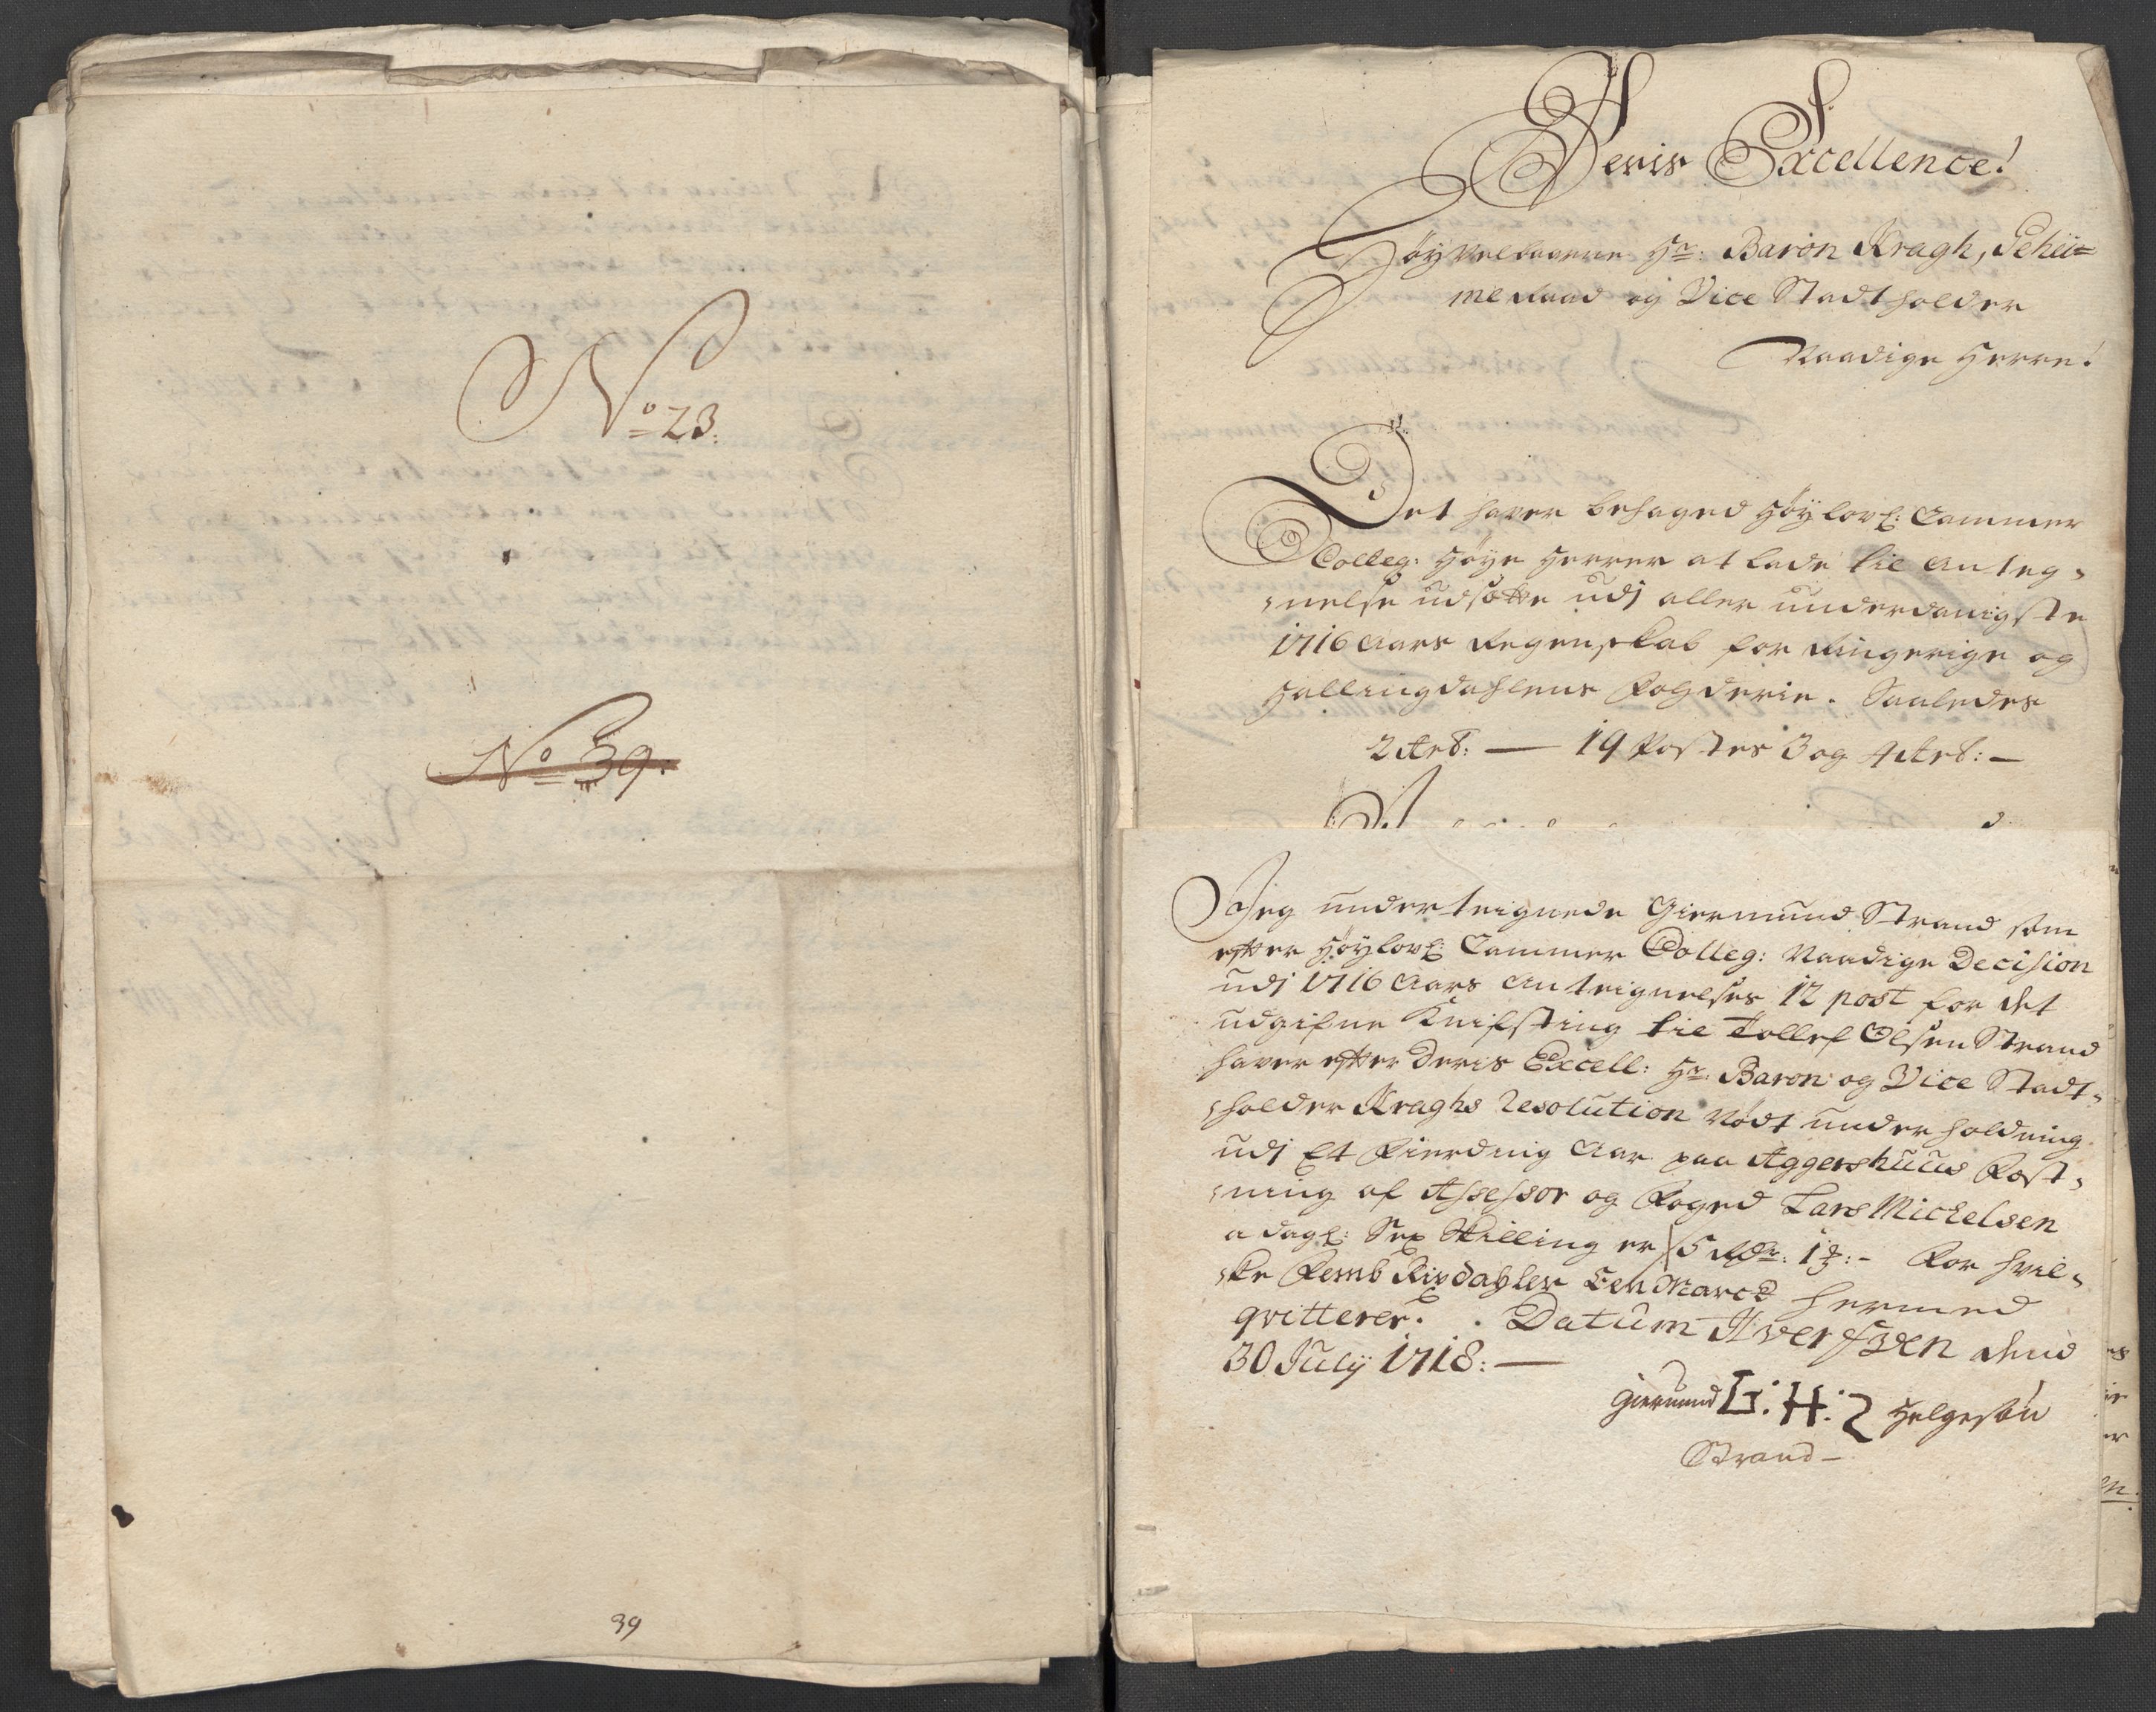 No 23.
No 39.
39
Deris Excellence!
Høyvelbaarne Hr: Baron Kragh, Geheii=
me Raad og Vice Stadtholder
Naadige Herre!
Det haver behaged Høylovl: Cammer
Colleg: Høye Herrer at lade til Anteg=
=nelse udsætte udj aller underdanigste
1716 Aars Regenskab for Ringerige og
Hallingdahlens Fogderie. Saaledes
2 Art: — 19 Postes 3 og 4 Art: —
Jeg underteignede Giermund Strand som
efter Høylovl: Cammer Colleg: Naadige Decision
udj 1716 Aars Anteignelses 12 post for det
udgifne Knifsting til Tollef Olsen Strand
haver efter Deris Excell: Hr: Baron og Vice Stadt=
=holder Kraghs Resolution Nødt underholdning
udj Et Fierding Aar paa Aggershuus Fæst=
=ning af Assessor og Foged Lars Michelsen
a dagl: Sex Skilling er 5 Rdr: 1 ʒ:- For hvil=
=ke Femb Rixdahler Een Marck hermed
qvitterer. Datum Tverfzen dend
30 July 1718: —
Giermund G: H: S Helgesøn
Strand —